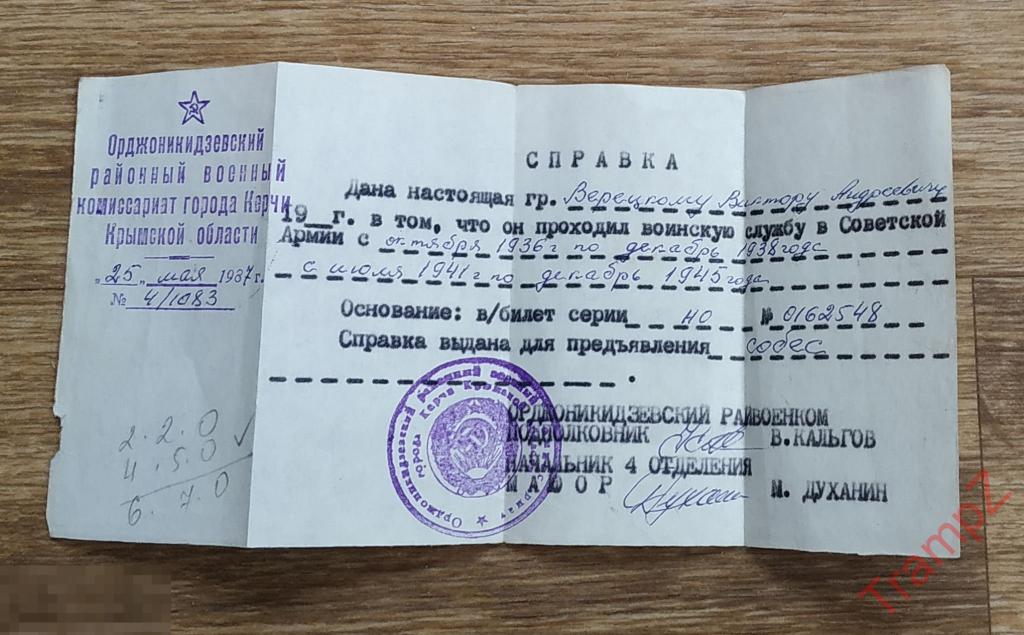 Орджоникидзевский
районный военный
комиссариат города Керчи
Крымской области
„25„ мая 1987 г.
№ 4/1083
2.2.0
4.5.0
6.7.0
СПРАВКА
Дана настоящая гр. Верецкому Виктору Андреевичу
19__г. в том, что он проходил воинскую службу в Советской
Армии с октября 1936г по декабрь 1938года
с июля 1941г по декабрь 1945года
Основание: в/билет серии НО № 0162548
Справка выдана для предъявления собес
ОРДЖОНИКИДЗЕВСКИЙ РАЙВОЕНКОМ
ПОДПОЛКОВНИК В.КАЛЬГОВ
НАЧАЛЬНИК 4 ОТДЕЛЕНИЯ
МАЙОР М. ДУХАНИН
Орджоникидзевский районный военный
города Керчи Крымской
TrampZ